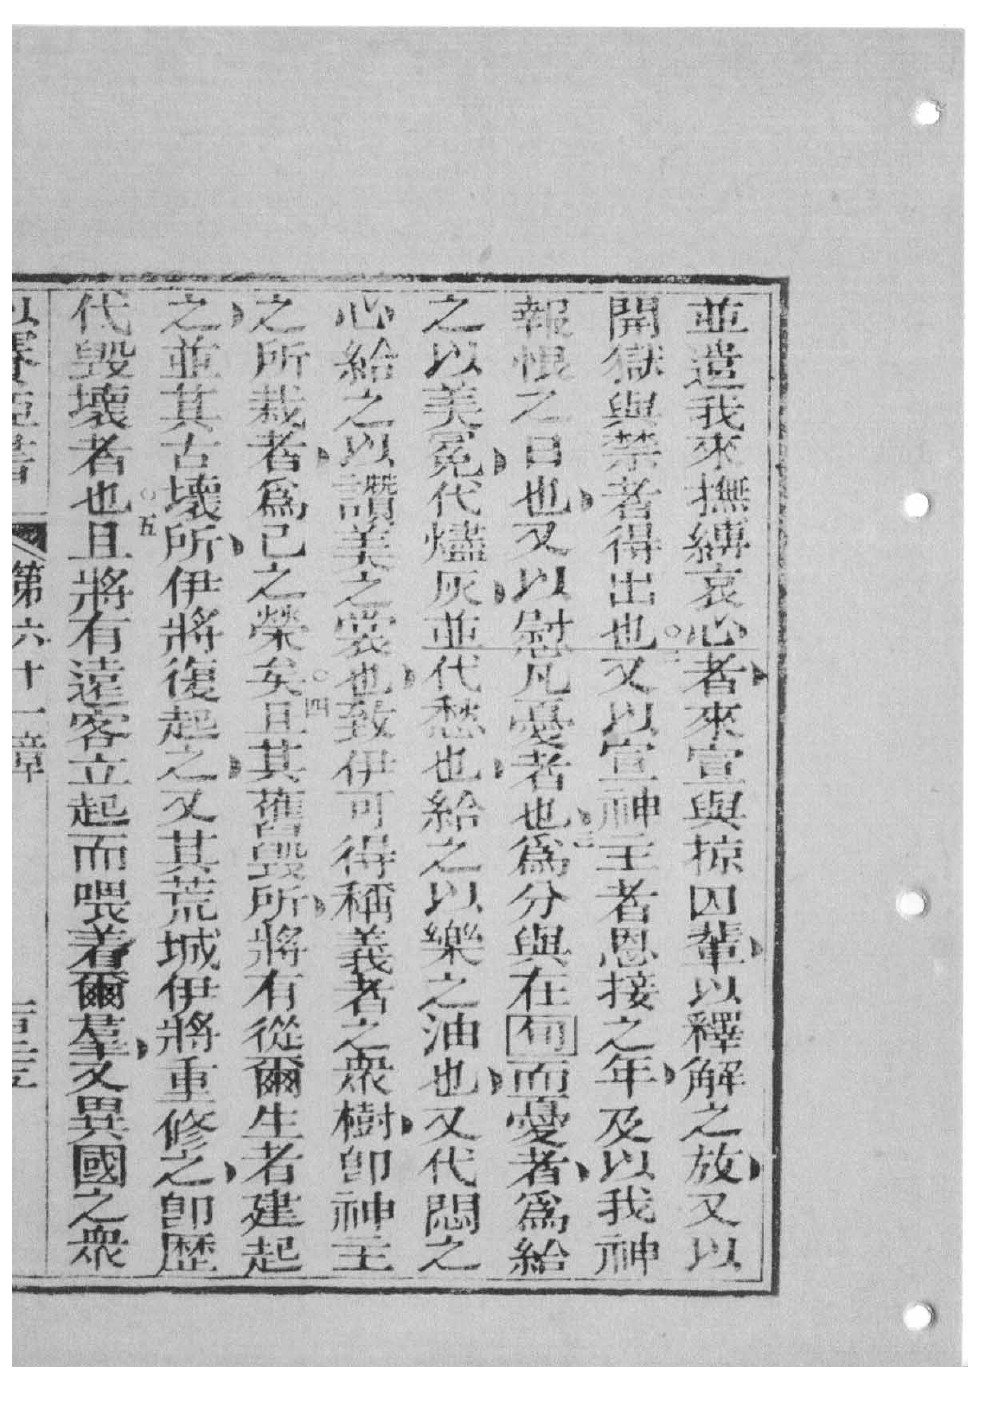 並遣我來撫縛哀心者來宣與掠囚輩以釋解之放又以
開獄與禁者得出也○二又以宣神主者恩接之年及以我神
報恨之日也又以慰凡憂者也○三爲分與在旬而憂者爲給
之以美冕代燼灰並代愁也給之以樂之油也又代悶之
心給之以讚美之裳也致伊可得稱義者之衆樹卽神主
之所栽者爲己之榮矣○四且其舊毀所將有從爾生者建起
之並其古壞所伊將復起之又其荒城伊將重修之卽歷
代毀壞者也○五且將有遠客立起而喂着爾羣又異國之衆
以賽亞書 第六十一章